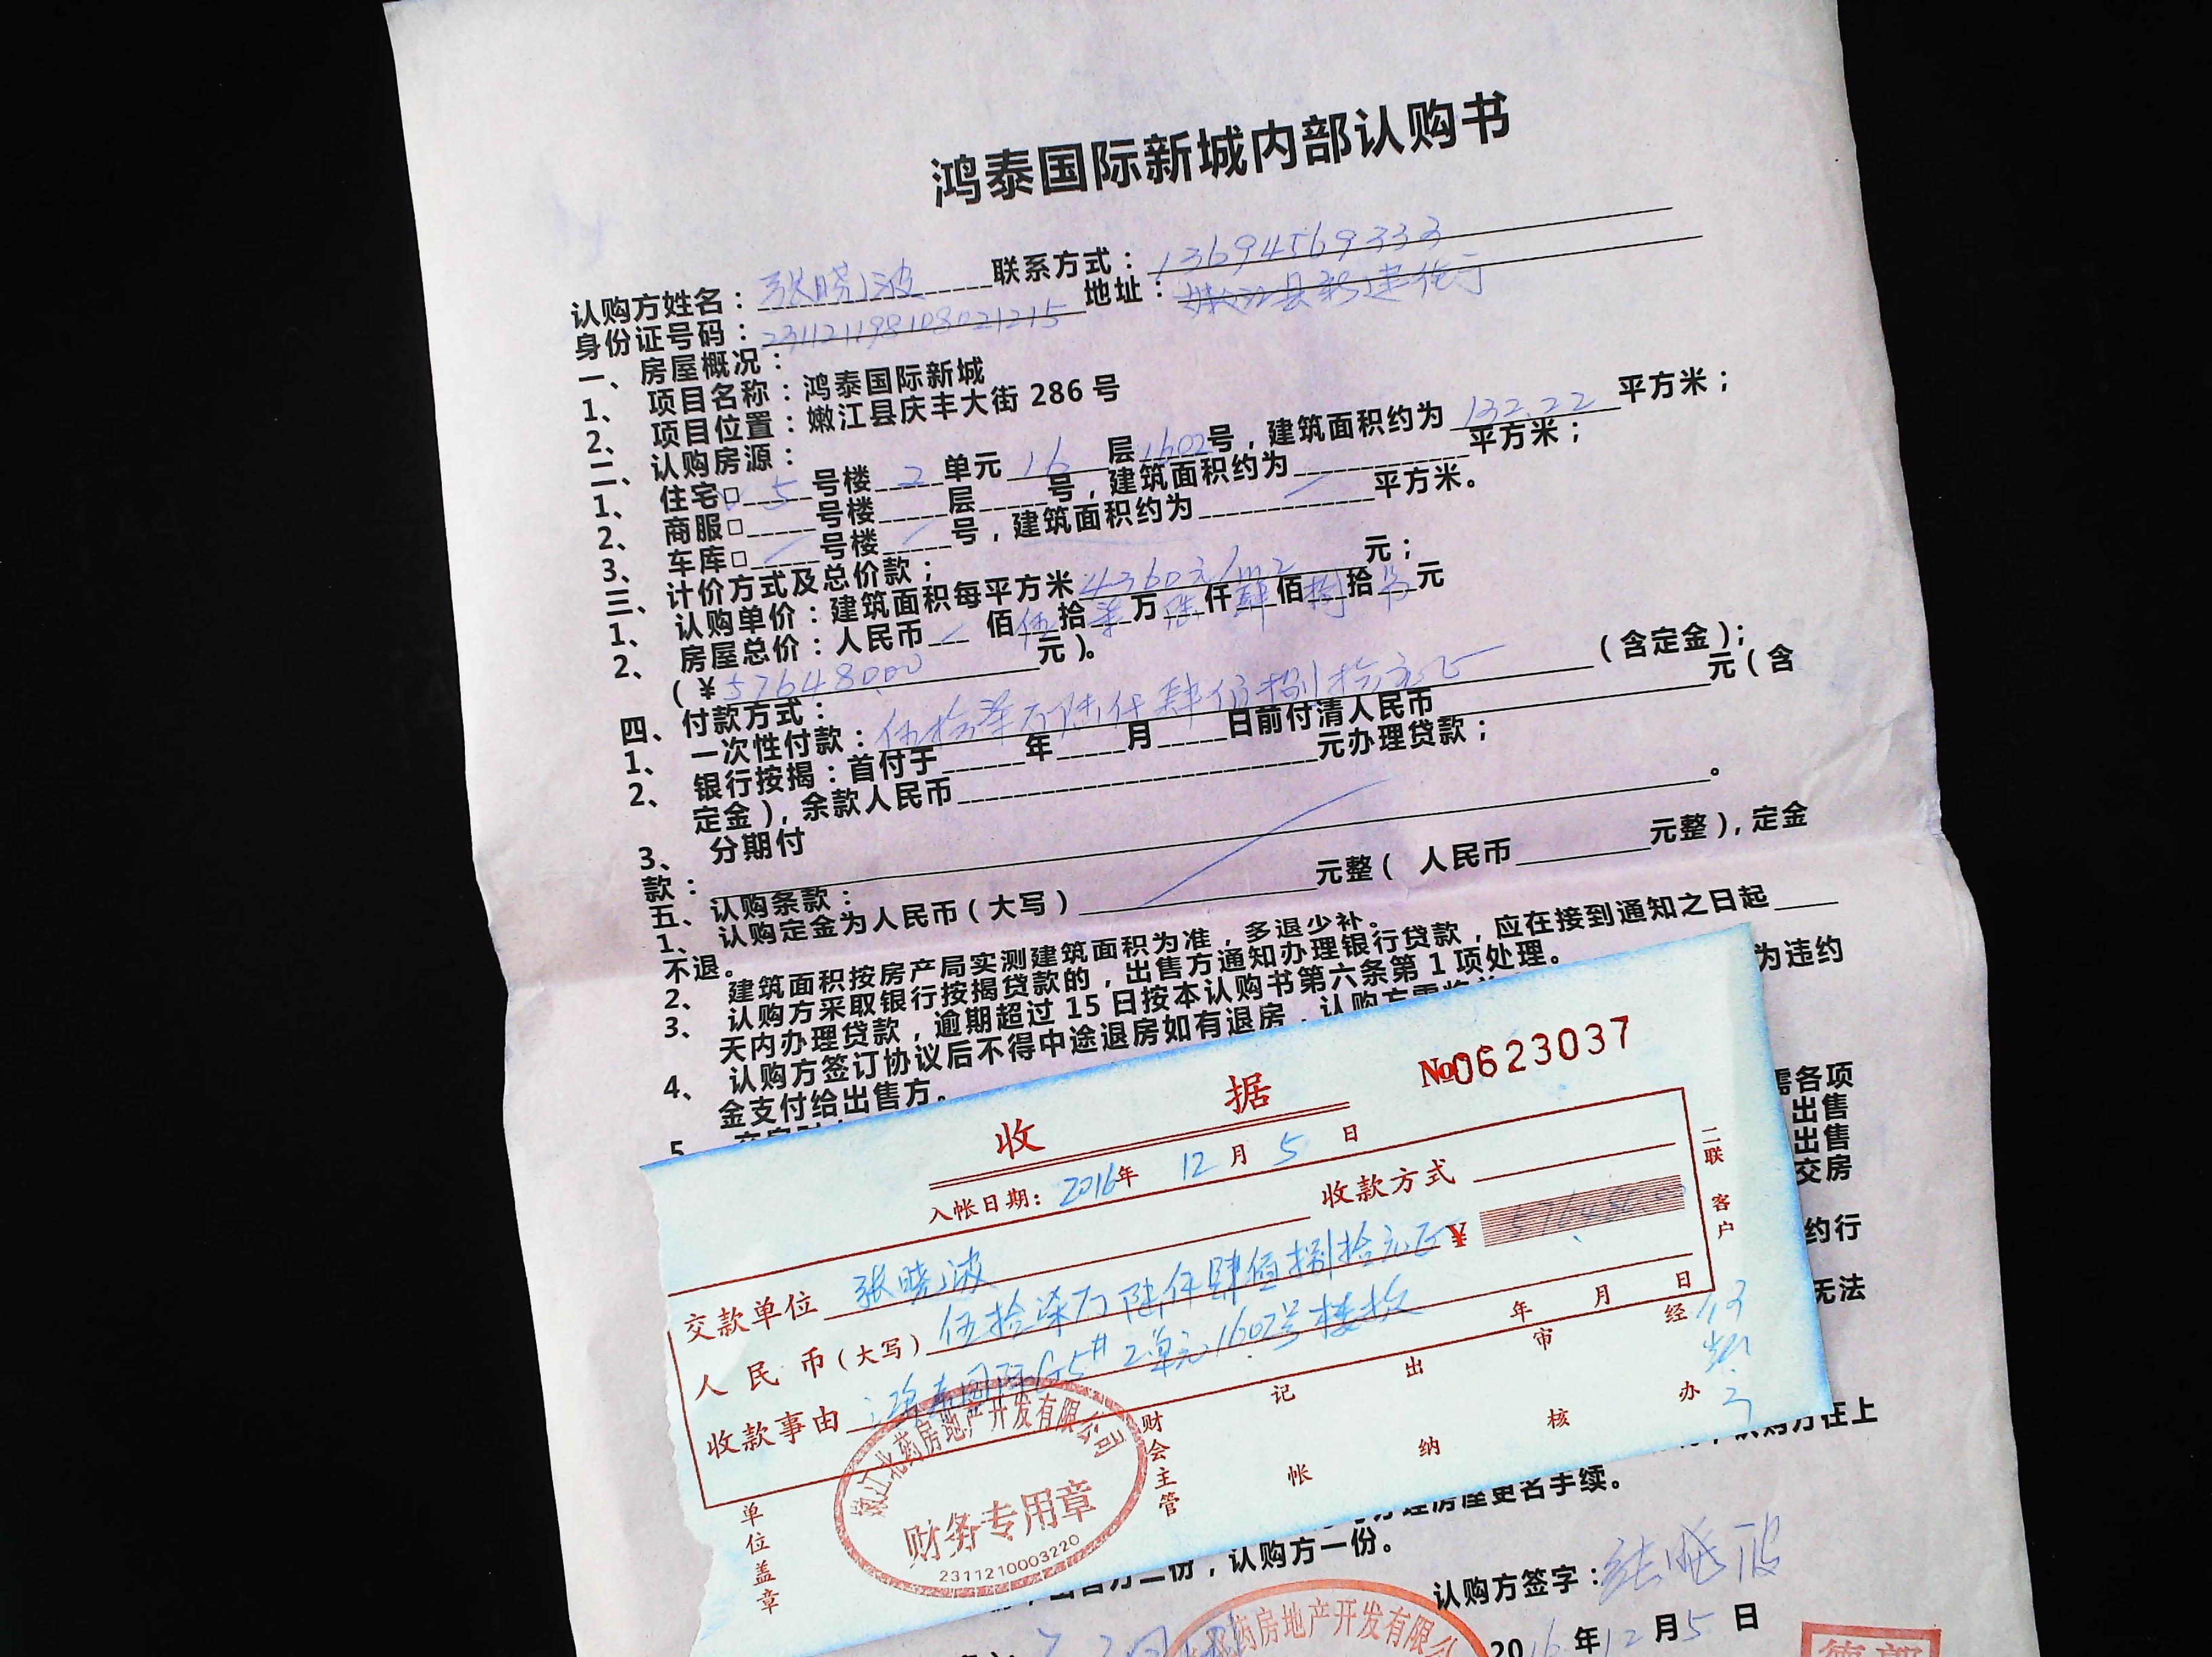 鸿泰国际新城内部认购书
认购方姓名：张晓波 联系方式：13694569333
身份证号码：231121198108021215 地址：嫩江县
一、房屋概况：
1、项目名称：鸿泰国际新城
2、项目位置：嫩江县庆丰大街 286 号
二、认购房源：
1、住宅□ 5 号楼 2 单元 16 层 1602 号，建筑面积约为 132.22 平方米；
2、商服□ 号楼 层 号，建筑面积约为 平方米；
3、车库□ 号楼 号，建筑面积约为 平方米。
三、计价方式及总价款；
1、认购单价：建筑面积每平方米 4360元/m2 元；
2、房屋总价：人民币 佰 伍 拾 柒 万 陆 仟 肆 佰 捌 拾 元
（￥576480.00 元）。
四、付款方式：
1、一次性付款：伍拾柒万陆仟肆佰捌拾元正 （含定金）；
2、银行按揭：首付于 年 月 日前付清人民币 元（含
定金），余款人民币 元办理贷款；
3、分期付
款： 。
五、认购条款：
1、认购定金为人民币（大写） 元整（ 人民币 元整），定金
不退。
2、建筑面积按房产局实测建筑面积为准，多退少补。
3、认购方采取银行按揭贷款的，出售方通知办理银行贷款，应在接到通知之日起
天内办理贷款，逾期超过 15 日按本认购书第六条第 1 项处理。
4、认购方签订协议后不得中途退房如有退房，认购方需将 为违约
金支付给出售方。
5
需各项
出售
出售
交房
约行
无法
收 据 №0623037
入帐日期：2016年 12 月 5 日
交款单位 张晓波 收款方式
人民币（大写）伍拾柒万陆仟肆佰捌拾元正 ￥576480.00
收款事由 鸿泰国际G5# 2单元1602号楼款
年 月 日
二联 客户
单位盖章 财会主管 记帐 出纳 审核 经办
嫩江北药房地产开发有限公司
财务专用章
2311210003220
认购方在上
办理房屋更名手续。
份，认购方一份。
认购方签字：张晓波
药房地产开发有限公
2016 年 12 月 5 日